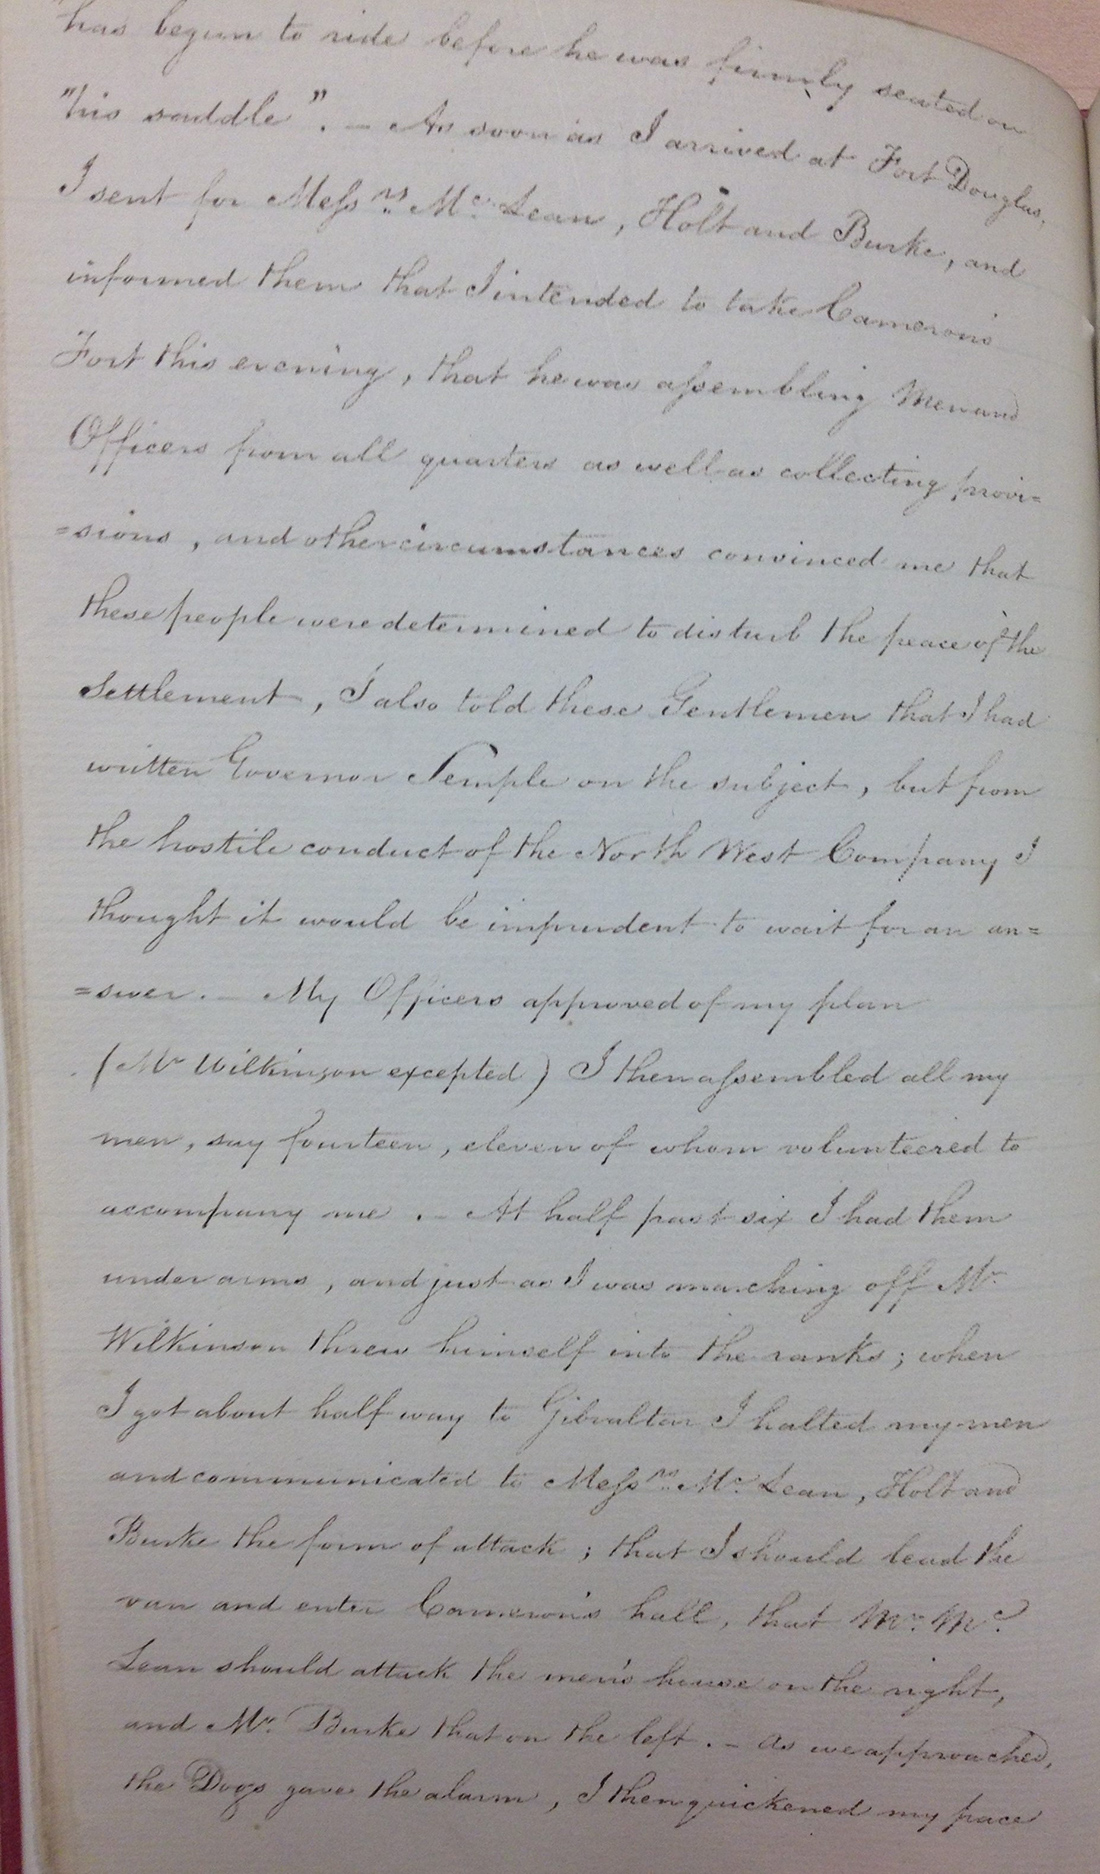 "has begun to ride before he was firmly seated on
"his saddle". — As soon as I arrived at Fort Douglas,
I sent for Messrs. Mc. Lean, Holt and Burke, and
informed them that I intended to take Cameron's
Fort this evening, that he was assembling Men and
Officers from all quarters as well as collecting provi=
=sions, and other circumstances convinced me that
these people were determined to disturb the peace of the
Settlement, I also told these Gentlemen that I had
written Governor Semple on the subject, but from
the hostile conduct of the North West Company I
thought it would be imprudent to wait for an an=
=swer. — My Officers approved of my plan
(Mr Wilkinson excepted) I then assembled all my
men, say fourteen, eleven of whom volunteered to
accompany me. — At half past six I had them
under arms, and just as I was marching off Mr.
Wilkinson threw himself into the ranks; when
I got about half way to Gibraltar I halted my men
and communicated to Messrs. Mc. Lean, Holt and
Burke the form of attack; that I should lead the
van and enter Cameron's hall, that Mr. Mc.
Lean should attack the men's house on the right,
and Mr. Burke that on the left. — As we approached,
the Dogs gave the alarm, I then quickened my pace